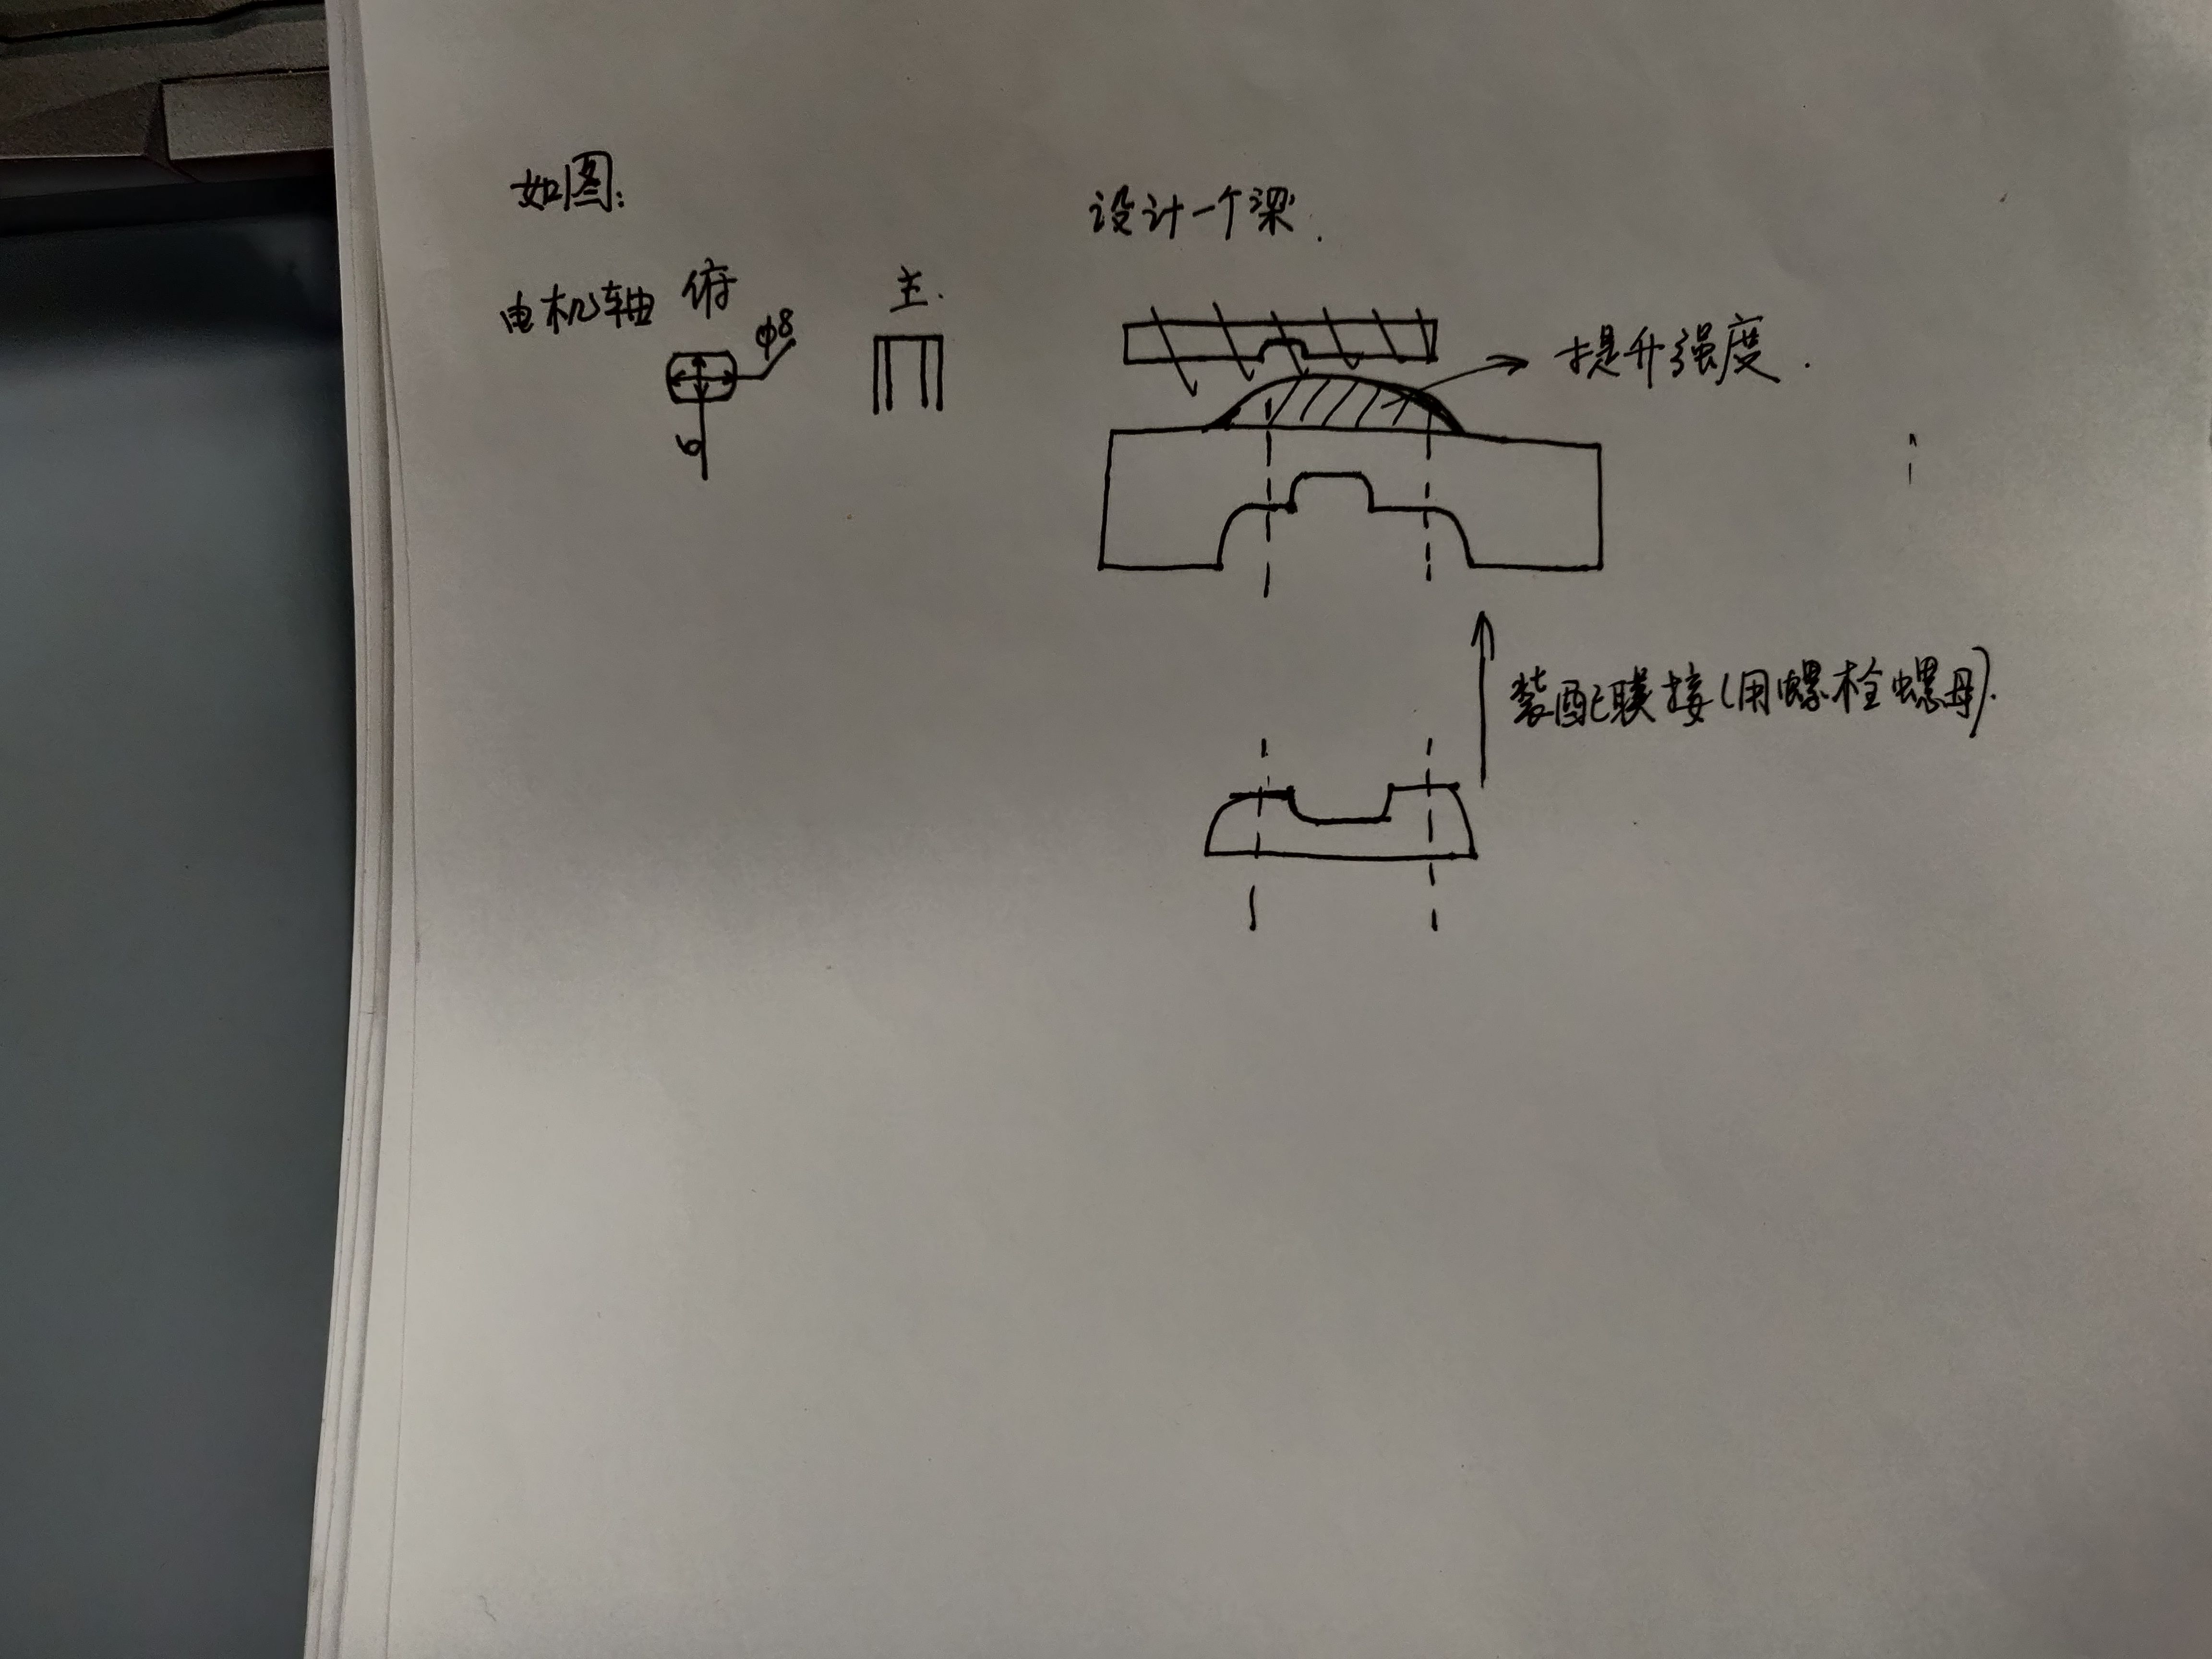 如图:
设计一个梁.
电机轴 俯 主.
φ8
6
提升强度.
装配联接(用螺栓螺母).